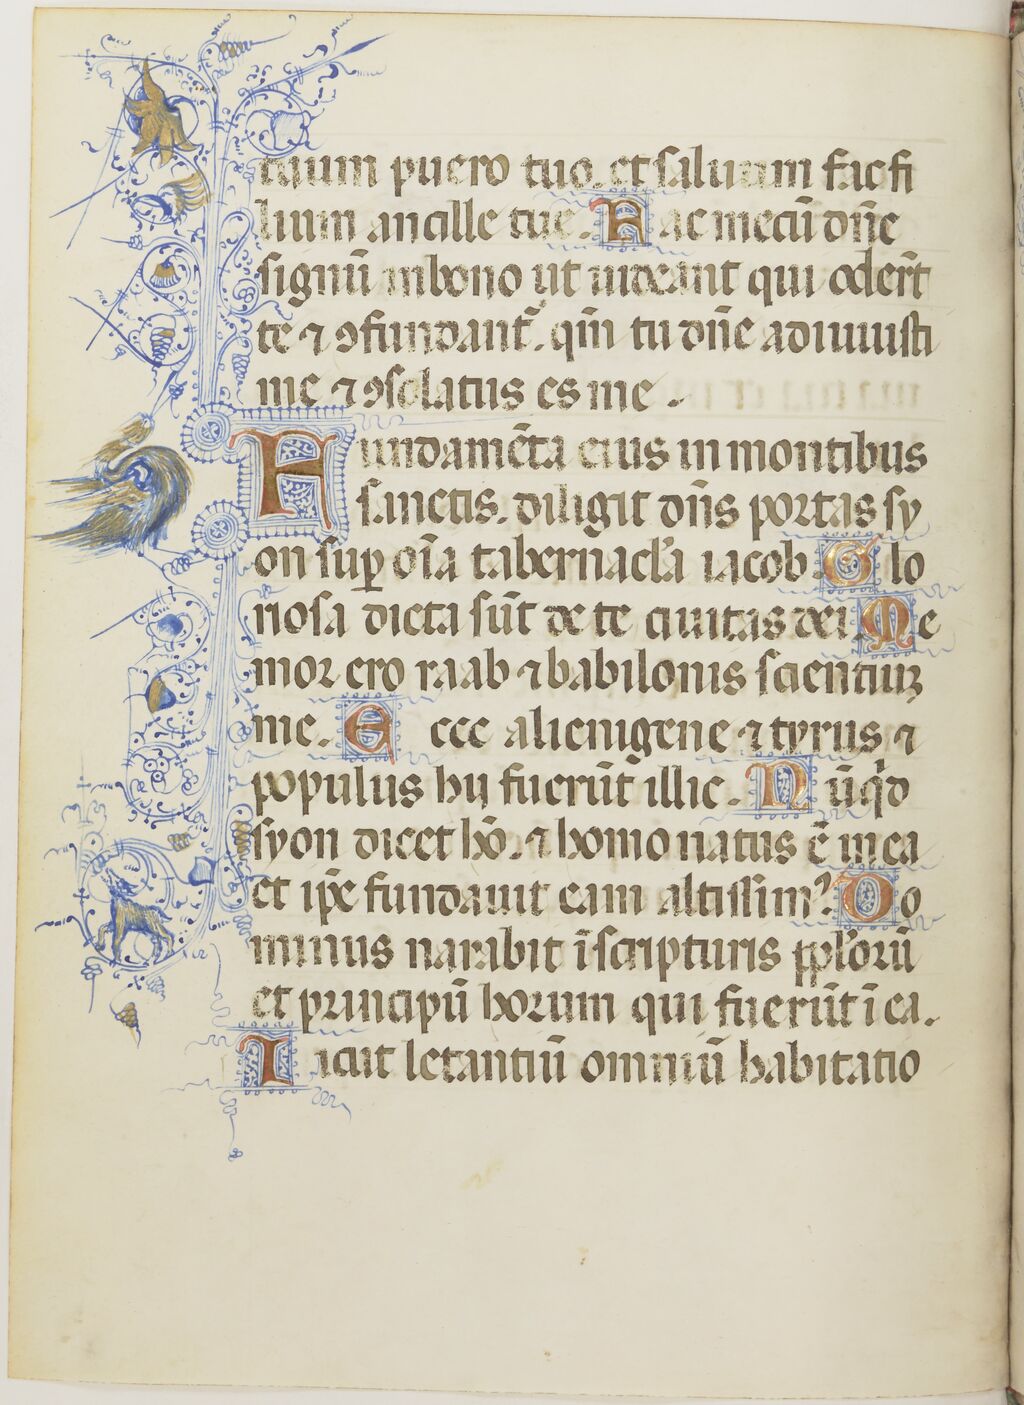 tuum puero tuo. et saluum fac fi
lium ancille tue. Fac mecū dn̄e
signū in bono ut uideant qui oderūt
te ⁊ ꝯfundant᷑. qm̄ tu dn̄e adiuuisti
me ⁊ ꝯsolatus es me.
Fundamēta eius in montibus
sanctis. diligit dn̄s portas sy
on suꝑ om̄ia tabernacl'a iacob. Glo
riosa dicta sūt de te ciuitas dei. Me
mor ero raab ⁊ babilonis scientiuꝫ
me. Ecce alienigene ⁊ tyrus ⁊
populus hij fuerūt illic. Nūq'd
syon dicet hō. ⁊ homo natus ē in ea
et ip̄e fundauit eam altissimꝰ. Do
minus narabit ī scripturis ppl'orū
et principū horum qui fuerūt ī ea.
Sicut letantiū omniū habitatio